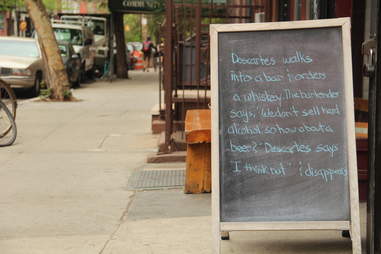 COMMUN
Descartes walks
into a bar & orders
a whiskey. The bartender
says, "We don't sell hard
alcohol, so how about a
beer?" Descartes says
"I think not" & disappears